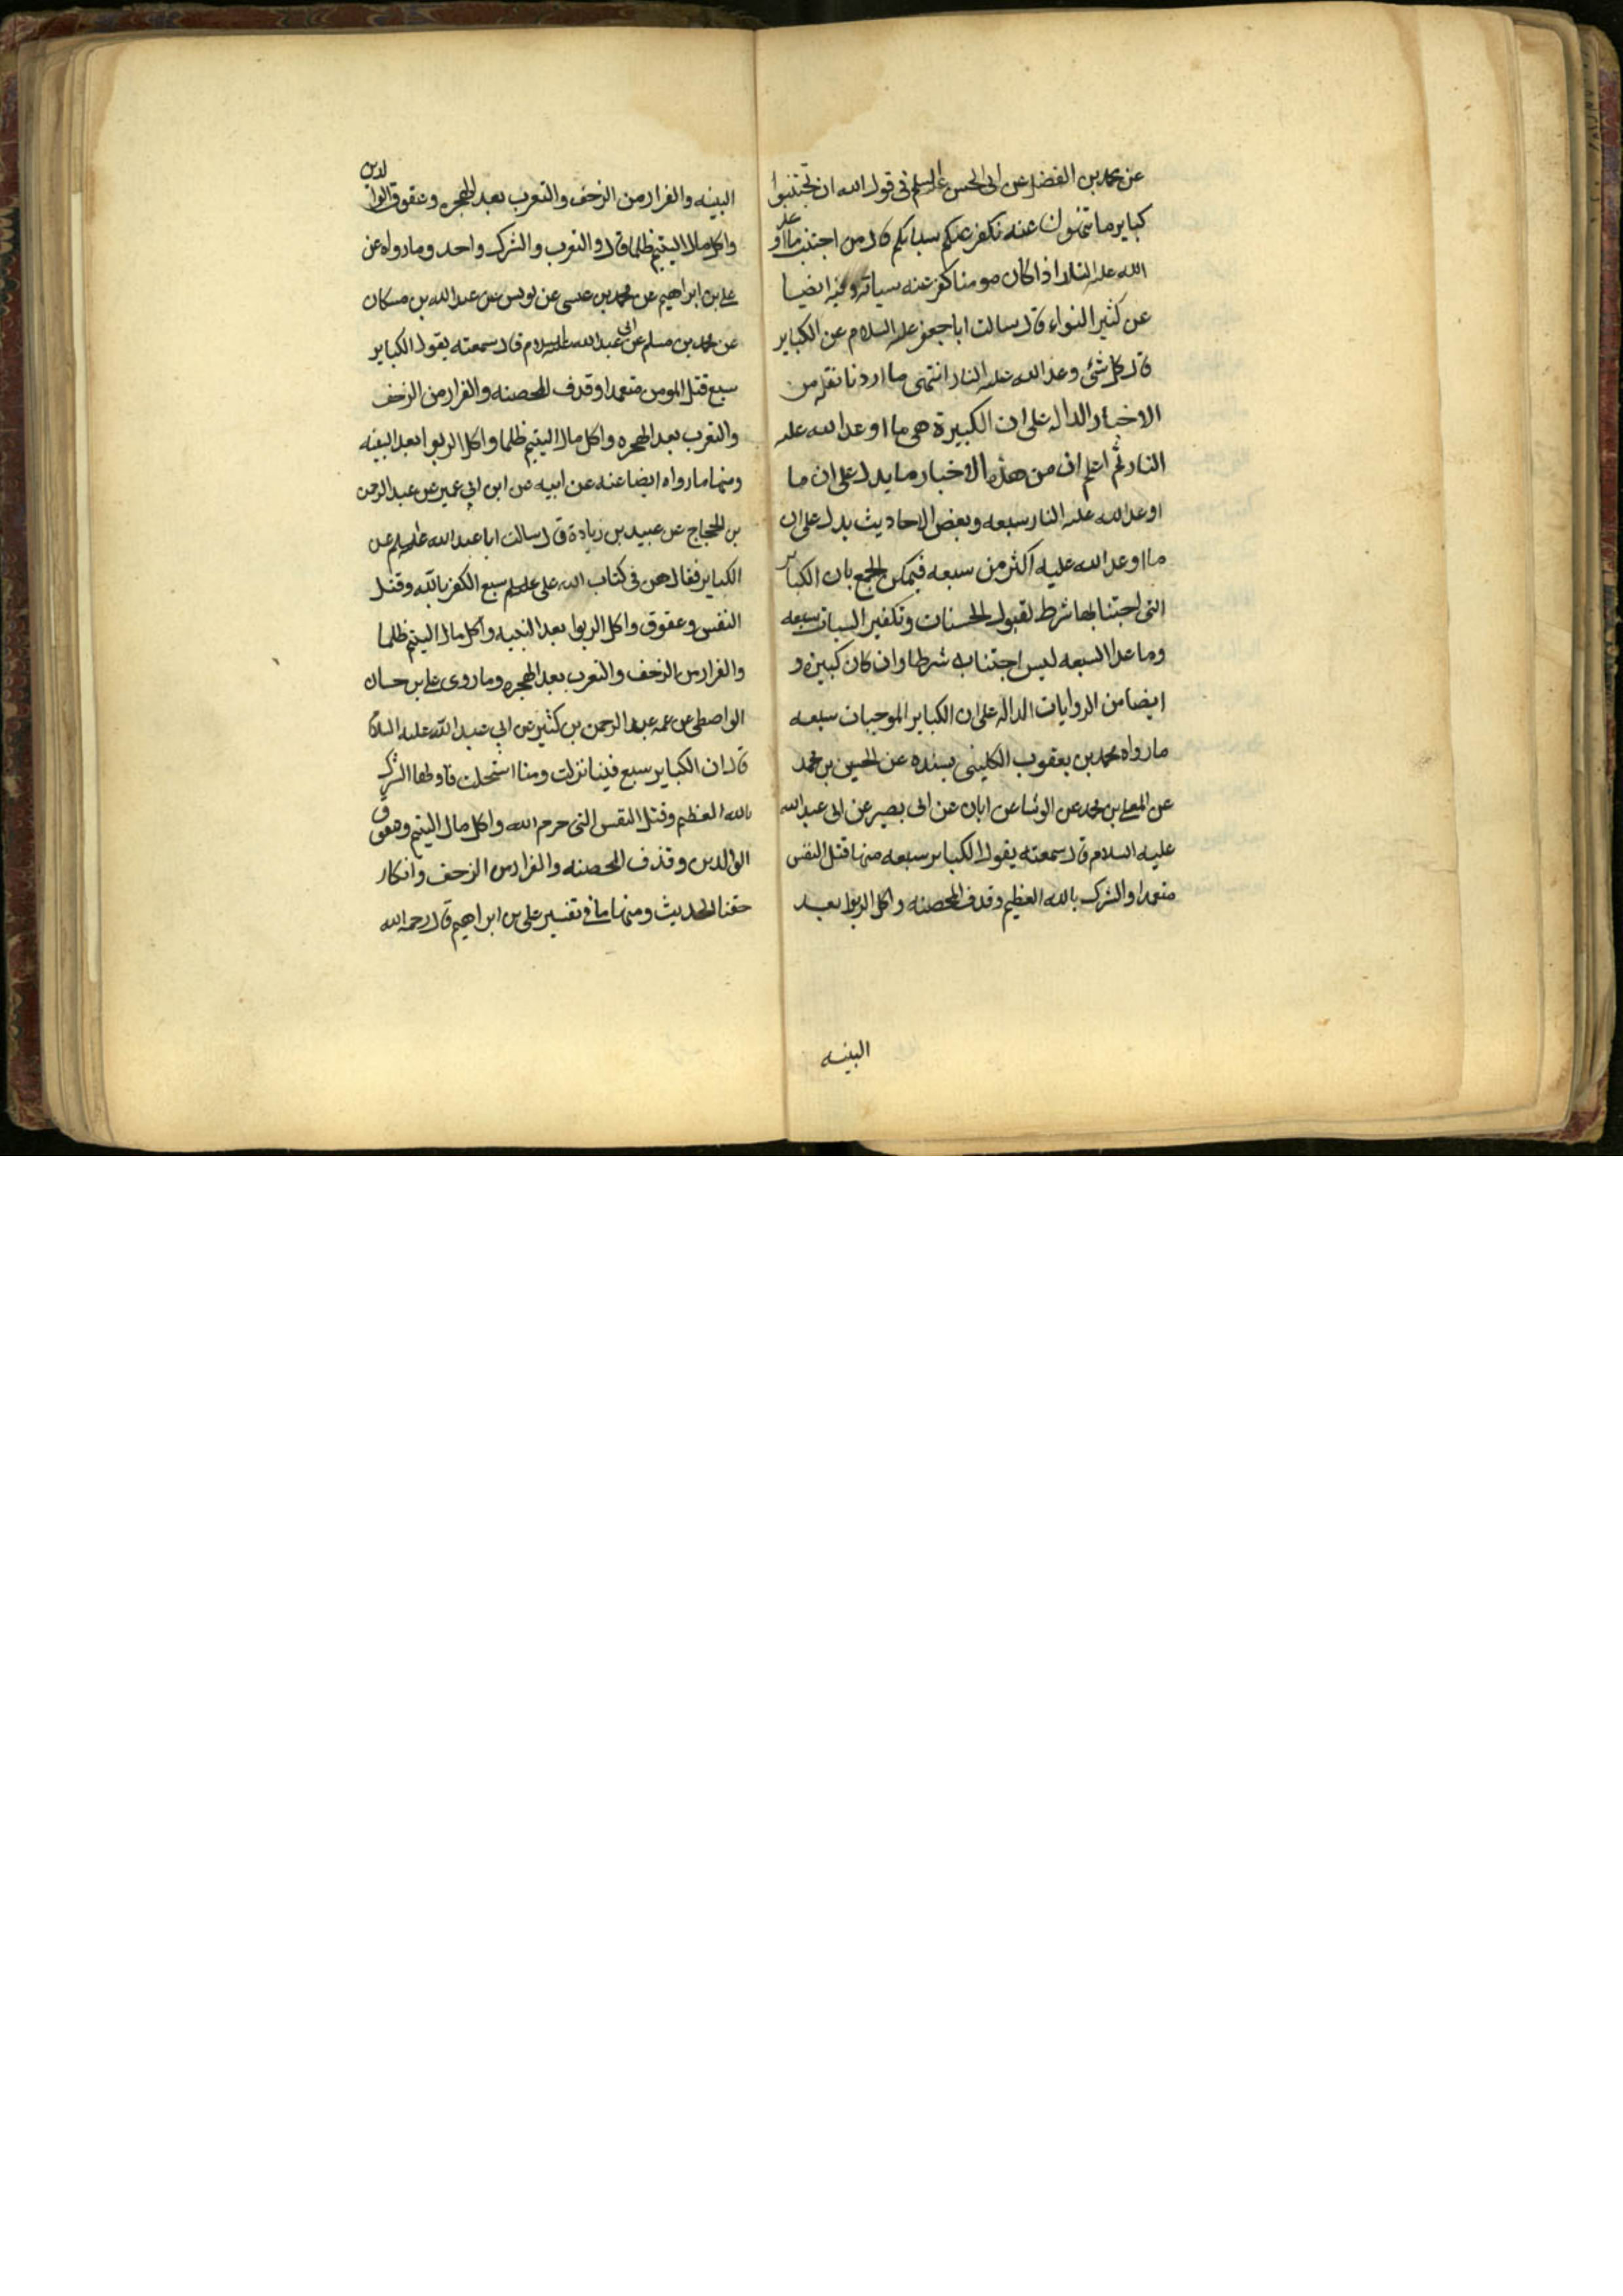 عن محمد بن الفضل عن ابى الحسن علیه السلم فى قول الله ان تجتنبوا
كباير ما تنهون عنه نكفر عنكم سياتكم قال من اجتنب ما اوعد
الله عليه النار اذا كان مومنا كفر عنه سياته وفيه ايضا
عن كثير النواء قال سالت ابا جعفر عليه السلام عن الكباير
قال كل شئ وعد الله عليه النار انتهى ما اردنا نقله من
الاخبار الداله على ان الكبيرة هى ما اوعد الله عليه
النار ثم اعلم ان من هذه الاخبار ما يدل على ان ما
اوعد الله عليه النار سبعه وبعض الاحاديث يدل على ان
ما اوعد الله عليه اكثر من سبعه فيمكن الجمع بان الكباير
التى اجتنابها شرط لقبول الحسنات وتكفير السيات سبعه
وما عدا السبعه ليس اجتنابه شرطا وان كان كبيره و
ايضا من الروايات الداله على ان الكباير الموجبات سبعه
ما رواه محمد بن يعقوب الكلينى بسنده عن الحسين بن محمد
عن المعلى بن محمد عن الوشا عن ابان عن ابى بصير عن ابى عبد الله
عليه السلام قال سمعته يقول الكباير سبعه منها قتل النفس
متعمدا والشرك بالله العظيم وقذف المحصنه واكل الربوا بعد
البينه
البينه والفرار من الزحف والتعرب بعد الهجره وعقوق الوالدين
واكل مال اليتيم ظلما قال والتعرب والشرك واحد وما رواه عن
على بن ابراهيم عن محمد بن عيسى عن يونس عن عبد الله بن مسكان
عن محمد بن مسلم عن ابى عبد الله عليه السلام قال سمعته يقول الكباير
سبع قتل المومن متعمدا وقذف المحصنه والفرار من الزحف
والتعرب بعد الهجره واكل مال اليتيم ظلما واكل الربوا بعد البينه
ومنها ما رواه ايضا عنه عن ابيه عن ابن ابي عمير عن عبد الرحمن
بن الحجاج عن عبيد بن زيادة قال سالت ابا عبد الله عليه السلم عن
الكباير فقال هن فى كتاب الله على عليه السلم سبع الكفر بالله وقتل
النفس وعقوق واكل الربوا بعد البينه واكل مال اليتيم ظلما
والفرار من الزحف والتعرب بعد الهجره وما روى على بن حسان
الواصطى عن عمه عبد الرحمن بن كثير عن ابي عبد الله عليه السلام
قال ان الكباير سبع فينا نزلت ومنا استحلت فاولها الشرك
بالله العظيم وقتل النفس التى حرم الله واكل مال اليتيم وعقوق
الوالدين وقذف المحصنه والفرار من الزحف وانكار
حقنا الحديث ومنها ما فى تفسير على بن ابراهيم قال رحمه الله